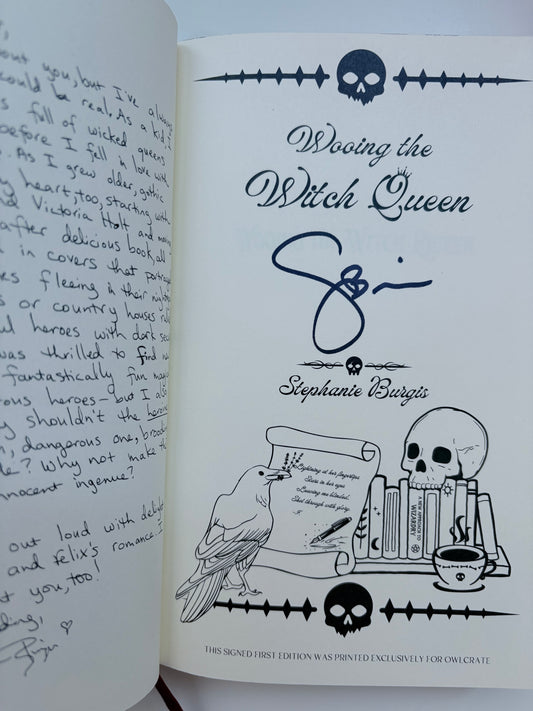 out you, but I've always
could be real. As a kid, I
s full of wicked queens
before I fell in love with
. As I grew older, gothic
y heart, too, starting with
d Victoria Holt and moving
after delicious book, all
in covers that portrayed
es fleeing in their
s or country houses
ul heroes with dark
was thrilled to find
fantastically fun
ous heroes - but I also
y shouldn't the heroine
, dangerous one,
le? Why not make the
nnocent ingenue?
out loud with
and Felix's romance.
t you, too!
ding,
Wooing the
Witch Queen
Stephanie Burgis
Lightning at her fingertips
Stars in her eyes
Leaving me blinded.
Shot through with glory.
A NEW APPROACH TO
WIZARDRY
THIS SIGNED FIRST EDITION WAS PRINTED EXCLUSIVELY FOR OWLCRATE